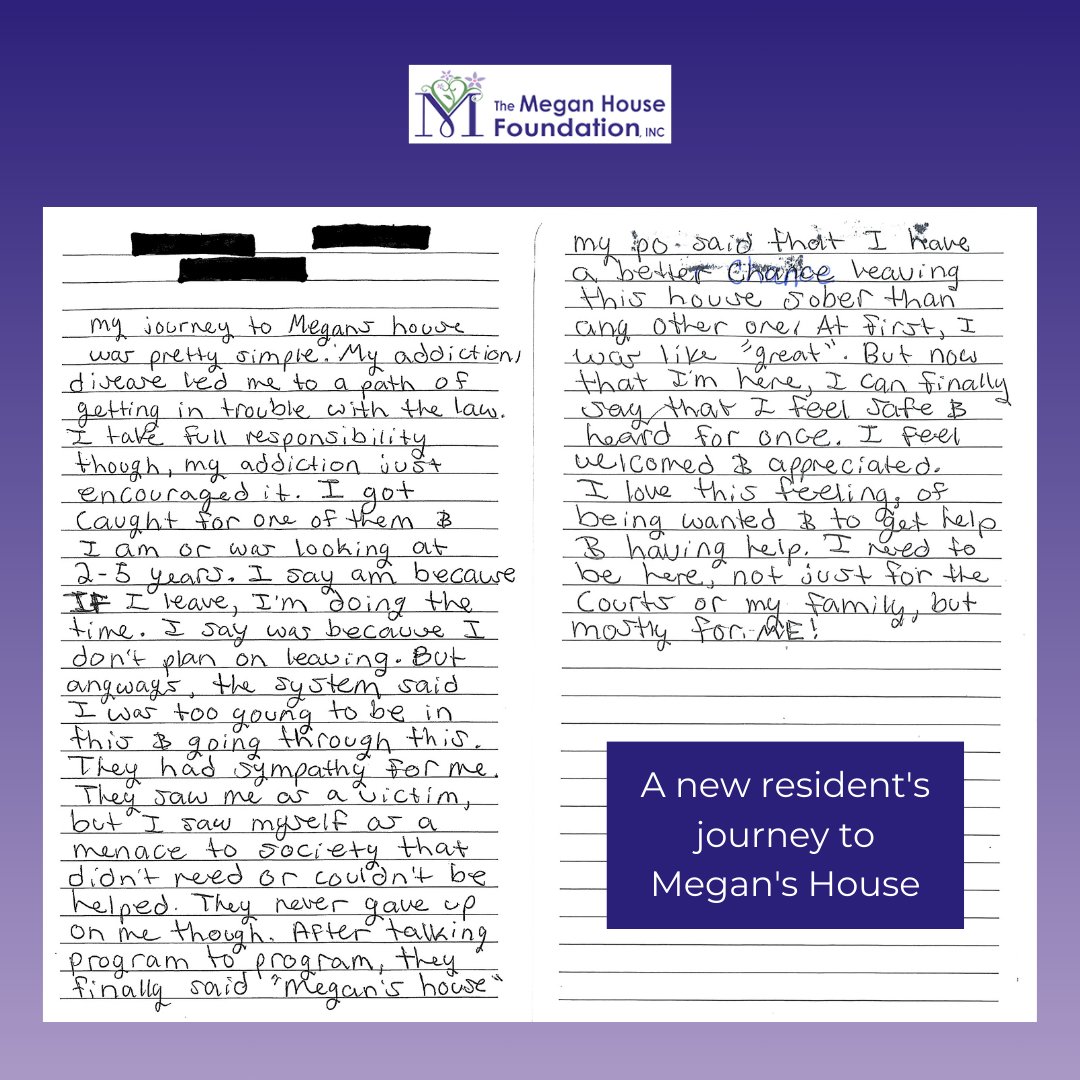 The Megan House
Foundation, INC
my journey to Megans house
was pretty simple. My addiction,
disease led me to a path of
getting in trouble with the law.
I take full responsibility
though, my addiction just
encouraged it. I got
caught for one of them &
I am or was looking at
2-5 years. I say am because
IF I leave, I'm doing the
time. I say was because I
don't plan on leaving. But
anyways, the system said
I was too young to be in
this & going through this.
They had sympathy for me.
They saw me as a victim,
but I saw myself as a
menace to society that
didn't need or couldn't be
helped. They never gave up
on me though. After talking
program to program, they
finally said "Megan's house"
my po. said that I have
a better chance leaving
this house sober than
any other one. At first, I
was like "great". But now
that I'm here, I can finally
say that I feel safe &
heard for once. I feel
welcomed & appreciated.
I love this feeling, of
being wanted & to get help
& having help. I need to
be here, not just for the
courts or my family, but
mostly for ME!
A new resident's
journey to
Megan's House